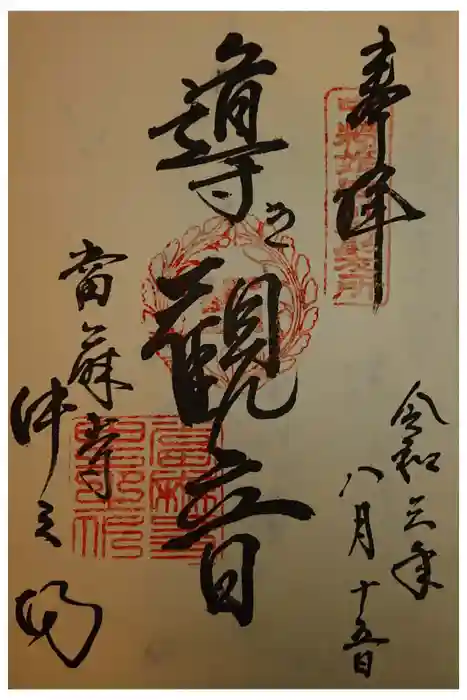 奉拝
令和三年
八月十五日
導き観音
當麻寺
中之坊